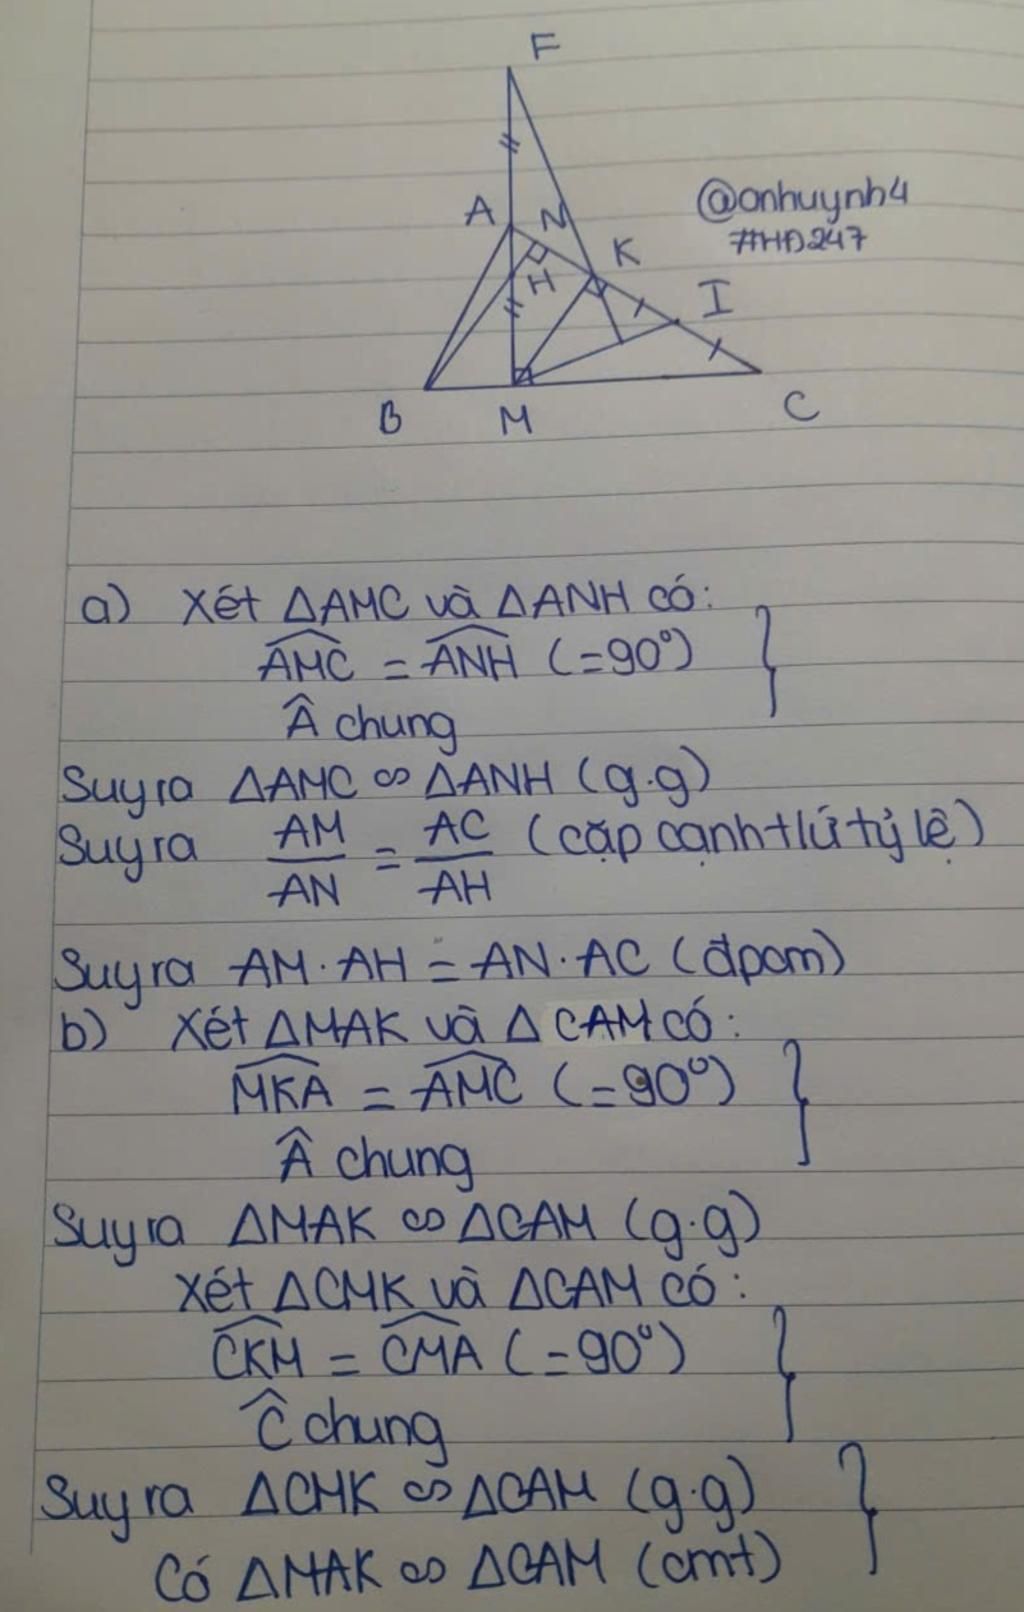 F
A
N
@onhuynh4
#HĐ247
K
H
I
B
M
C
a) Xét ΔAMC và ΔANH có:
AMC = ANH (=90°)
Â chung
Suy ra ΔAMC ∽ ΔANH (g.g)
Suy ra AM/AN = AC/AH (cặp cạnh tứ tỷ lệ)
Suy ra AM·AH = AN·AC (đpcm)
b) Xét ΔMAK và ΔCAM có:
MKA = AMC (=90°)
Â chung
Suy ra ΔMAK ∽ ΔCAM (g.g)
Xét ΔCMK và ΔCAM có:
CKM = CMA (=90°)
Ĉ chung
Suy ra ΔCMK ∽ ΔCAM (g.g)
Có ΔMAK ∽ ΔCAM (cmt)